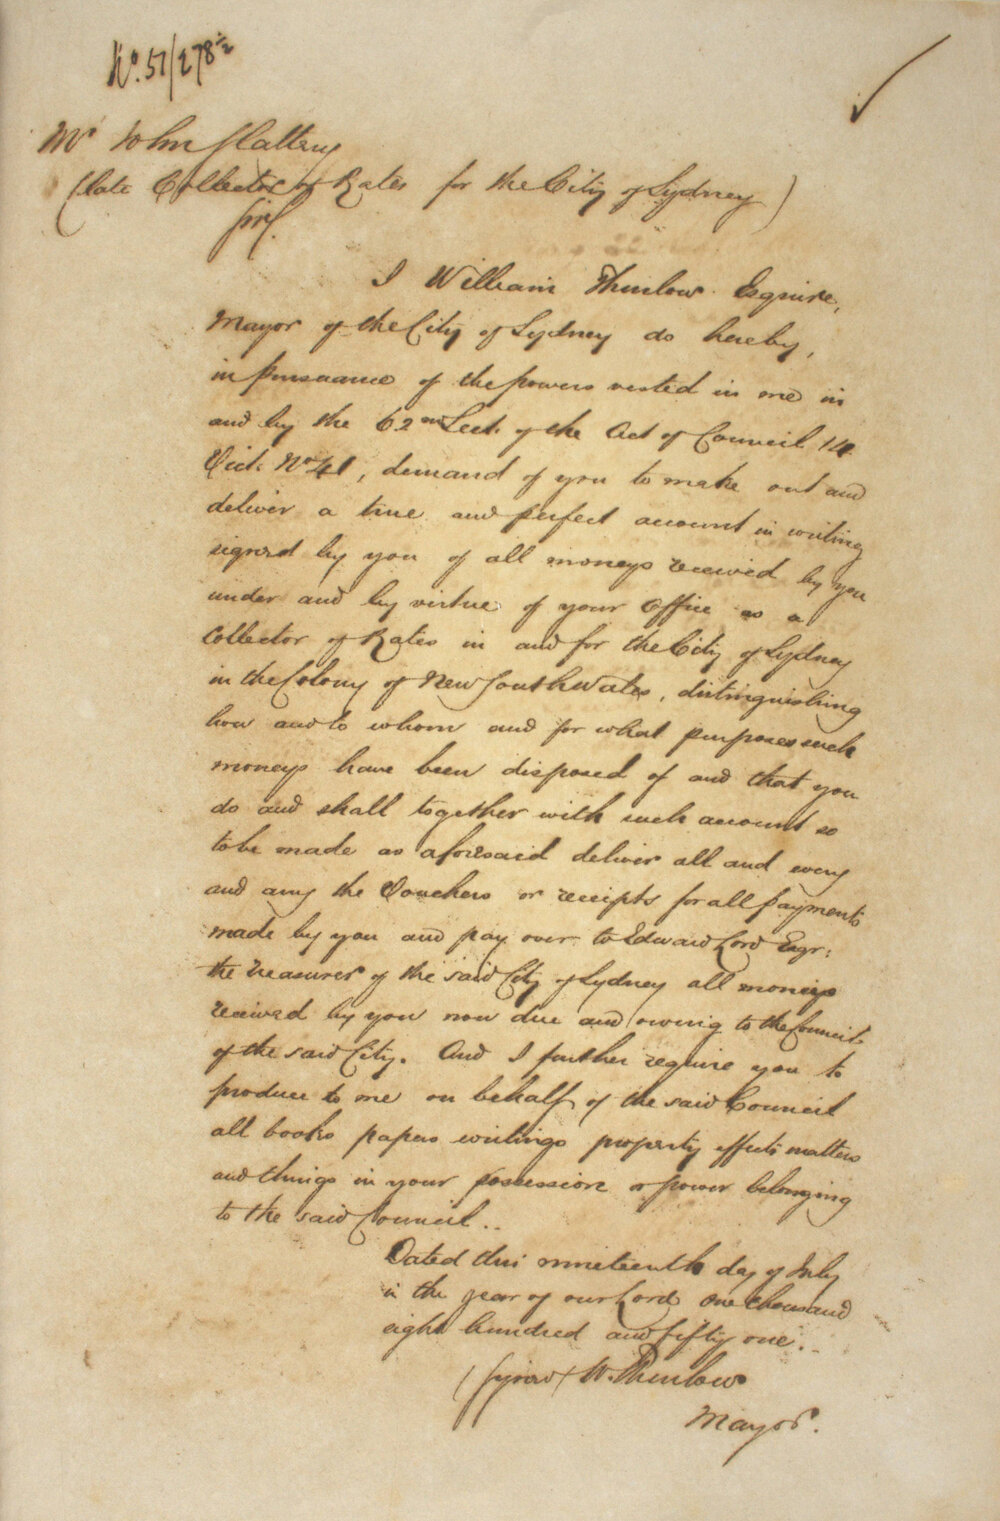 No. 51/278½
Mr John Slattery
(late Collector of Rates for the City of Sydney)
Sir/.
I William Thurlow Esquire,
Mayor of the City of Sydney do hereby,
in pursuance of the powers vested in me in
and by the 62nd Sect. of the Act of Council 14
Vict. No 41, demand of you to make out and
deliver a true and perfect account in writing
signed by you of all moneys received by you
under and by virtue of your Office as a
Collector of Rates in and for the City of Sydney
in the Colony of New South Wales, distinguishing
how and to whom and for what purposes such
moneys have been disposed of and that you
do and shall together with such account so
to be made as aforesaid deliver all and every
and any the Vouchers or receipts for all payments
made by you and pay over to Edward Lord Esqr:
the Treasurer of the said City of Sydney all moneys
received by you now due and owing to the Council
of the said City. And I further require you to
produce to me on behalf of the said Council
all books papers writings property effects matters
and things in your possession or power belonging
to the said Council..
Dated this nineteenth day of July
in the year of our Lord one thousand
eight hundred and fifty one..
(Signed) W. Thurlow
Mayor.